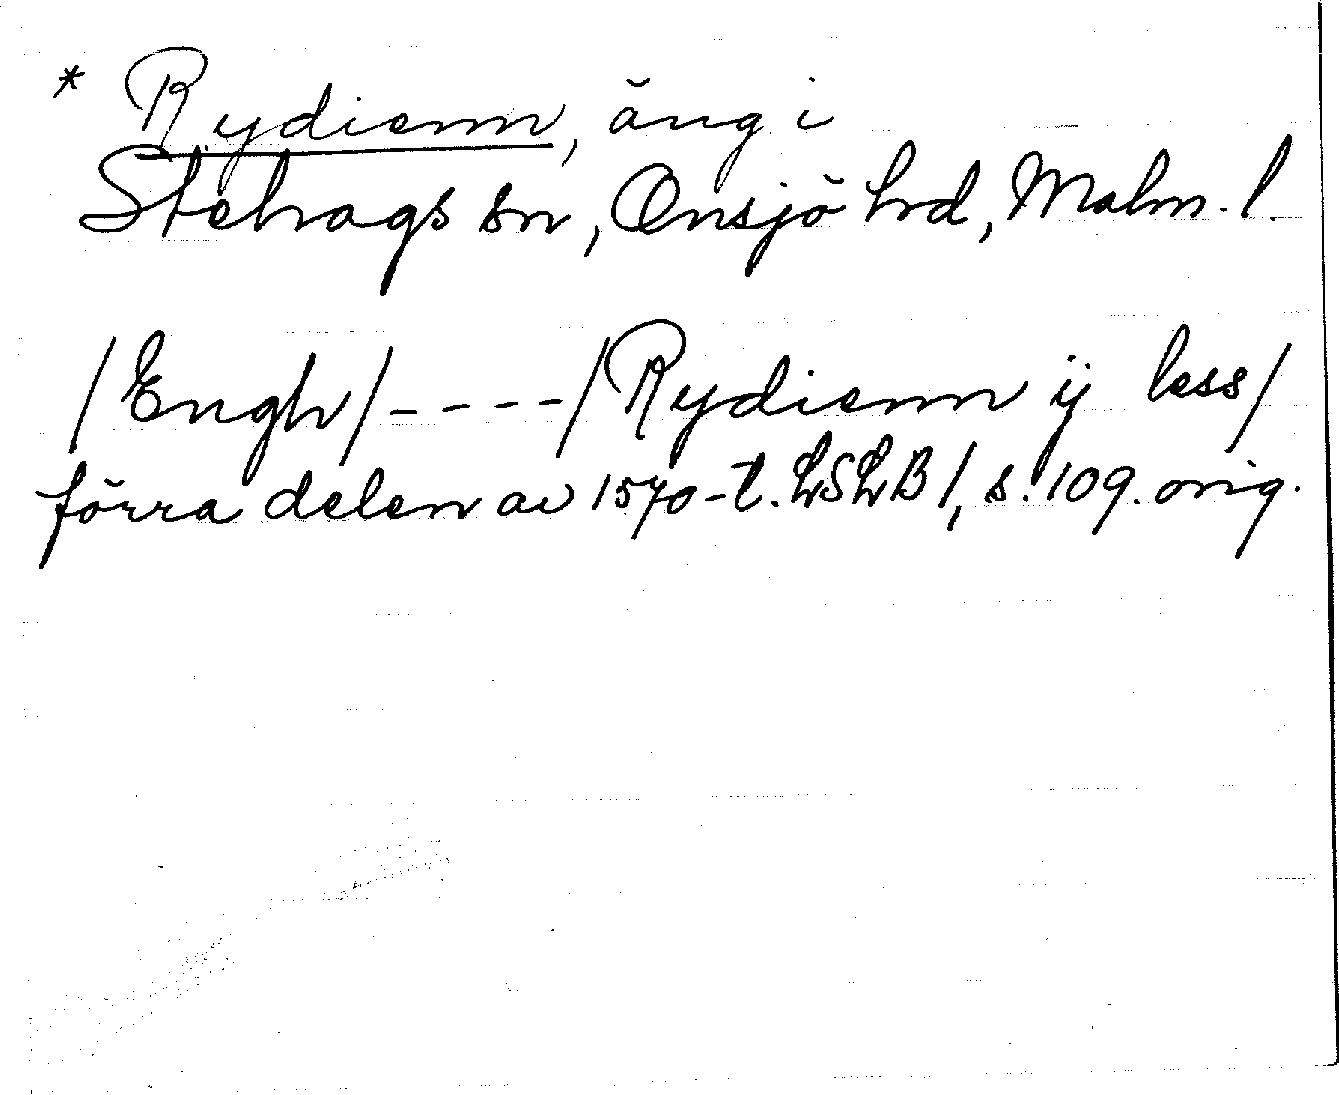 * Rydienn, äng i
Stehags sn, Onsjö hrd, Malm. l.
/Engh/----/Rydienn ij less/
förra delen av 1570-t. LSLB 1, s. 109. orig.